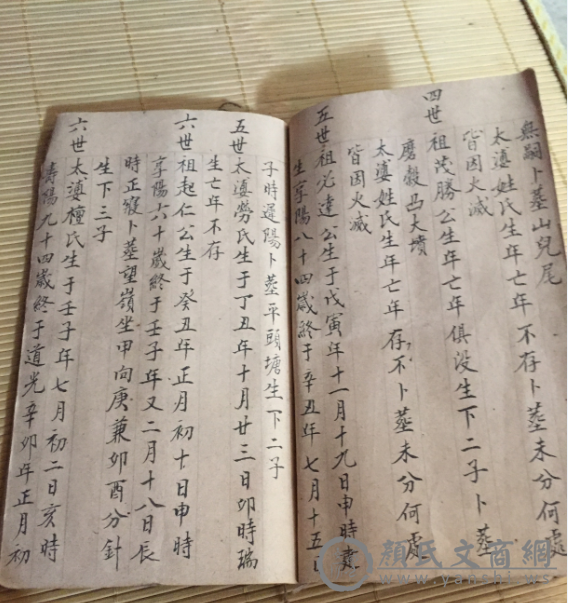 無嗣卜塟山兒尾
太婆姓氏生年亡年不存卜塟未分何處
皆因火滅
四世祖茂勝公生年亡年俱没生下二子卜塟
磨穀凸大墳
太婆姓氏生年亡年存不卜塟未分何處
皆因火滅
五世祖必達公生于戊寅年十一月十九日申時建
生享陽八十四歲終于辛丑年七月十五
子時遷陽卜塟平頭塘生下二子
五世太婆勞氏生于丁丑年十月廿三日卯時瑞
生亡年不存
六世祖起仁公生于癸丑年正月初十日申時
享陽六十歲終于壬子年又二月十八日辰
時正寢卜塟望嶺坐甲向庚兼卯酉分針
生下三子
六世太婆檀氏生于壬子年七月初二日亥時
壽陽九十四歲終于道光辛卯年正月初
顏氏文商網
www.yanshi.ws